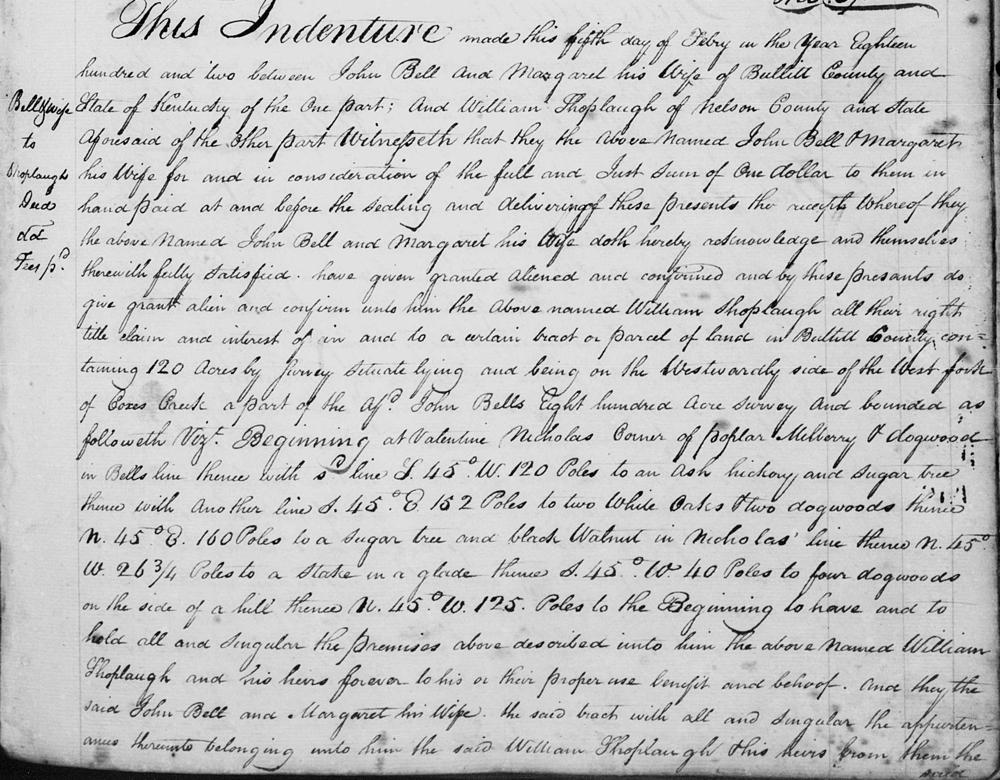 This Indenture made this fifth day of Febry in the Year Eighteen
hundred and two between John Bell and Margaret his Wife of Bullitt County and
State of Kentucky of the One part; And William Shoplaugh of Nelson County and State
Aforesaid of the Other part Witnesseth that they the above Named John Bell & Margaret
his Wife for and in consideration of the full and Just Sum of One dollar to them in
hand paid at and before the sealing and delivering of these presents the receipts Whereof they
the above Named John Bell and Margaret his Wife doth hereby acknowledge and themselves
therewith fully Satisfied. have given granted aliened and confirmed and by these presants do
give grant alien and confirm unto him the above named William Shoplaugh all their right
title claim and interest of in and to a certain tract or parcel of land in Bullitt County con=
taining 120 Acres by Survey Situate lying and being on the Westwardly side of the West fork
of Coxes Creek a part of the Afsd. John Bells Eight hundred Acre Survey And bounded as
followeth Vizt. Beginning at Valentine Nicholas Corner of poplar Milberry & dogwood
in Bells line thence with sd line S. 45° W. 120 Poles to an Ash hickory and Sugar tree
thence with Another line S. 45° E. 152 Poles to two White Oaks & two dogwoods thence
N. 45° E. 160 Poles to a Sugar tree and black Walnut in Nicholas' line thence N. 45°
W. 26 3/4 Poles to a Stake in a glade thence S. 45° W. 40 Poles to four dogwoods
on the side of a hill thence N. 45° W. 125. Poles to the Beginning to have and to
hold all and Singular the premises above described unto him the above Named William
Shoplaugh and his heirs forever to his or their proper use benefit and behoof. And they the
said John Bell and Margaret his Wife. the said tract with all and Singular the appurten=
ances thereunto belonging unto him the said William Shoplaugh & his heirs from them the
said
Bell & wife
to
Shoplaugh
Deed
dd
Fees pd.